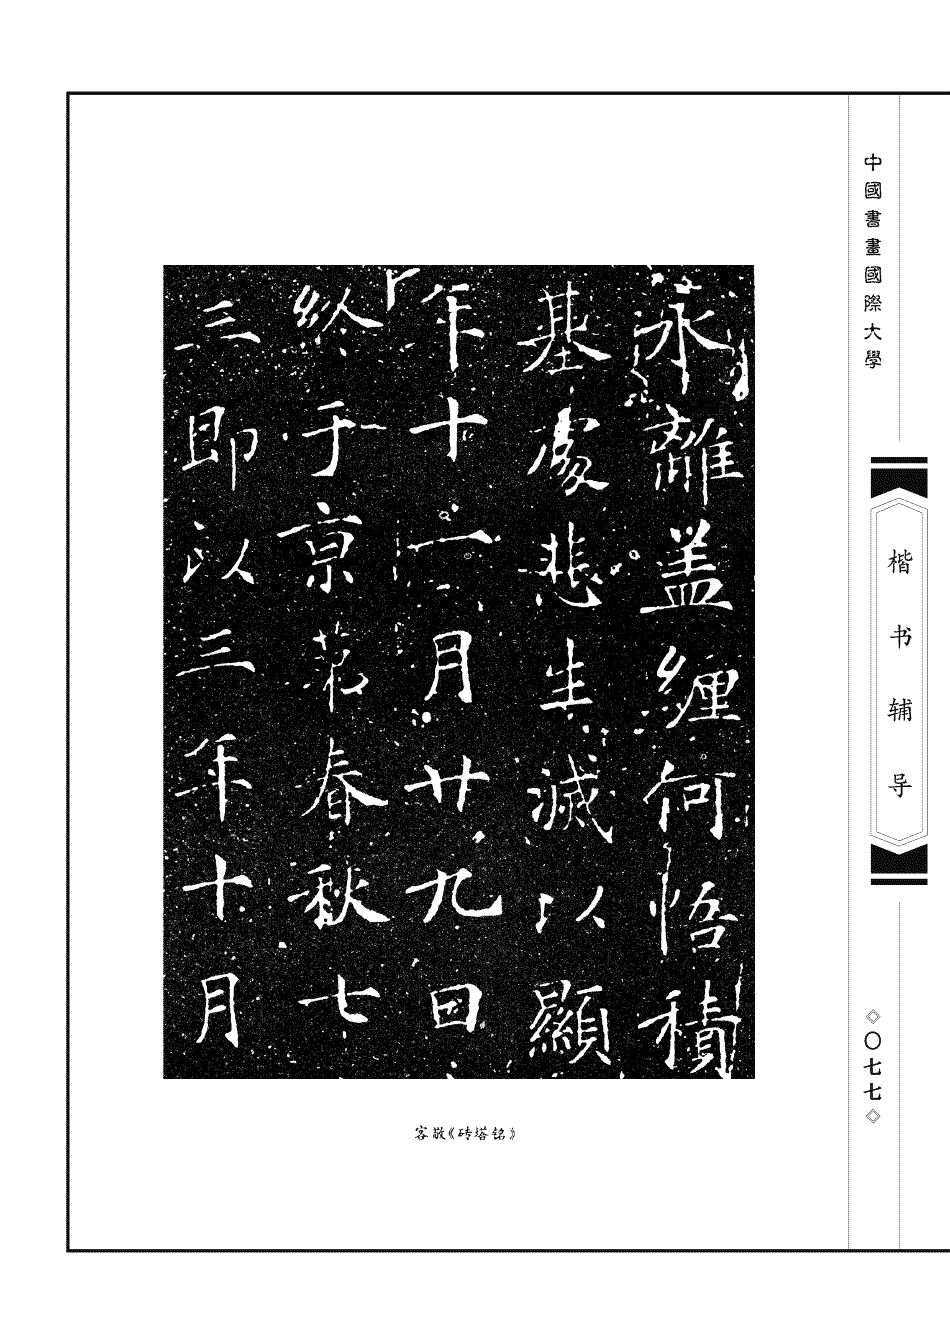 中國書畫國際大學
楷书辅导
◇〇七七◇
永離盖纏何悟積
基處悲生滅以顯
年十一月廿九日
終于京苐春秋七
三即以三年十月
客敬《砖塔铭》